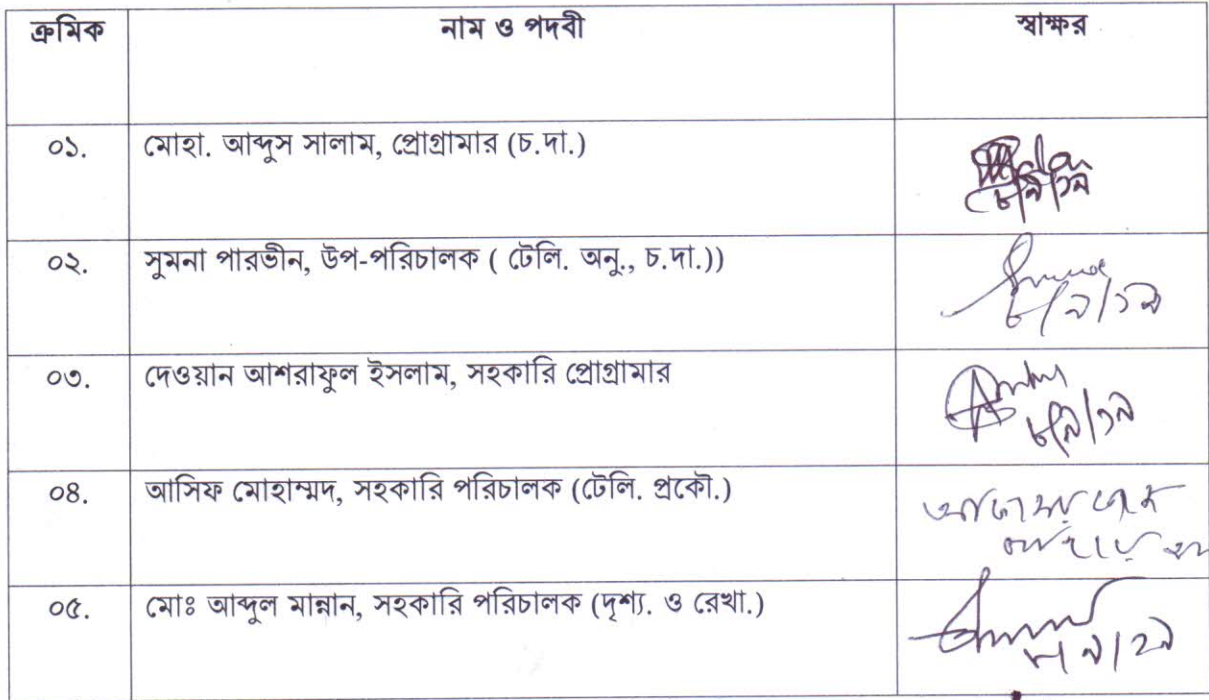 ক্রমিক নাম ও পদবী স্বাক্ষর
০১. মোহা. আব্দুস সালাম, প্রোগ্রামার (চ.দা.)
৮/৯/১৯
০২. সুমনা পারভীন, উপ-পরিচালক ( টেলি. অনু., চ.দা.))
৮/৯/১৯
০৩. দেওয়ান আশরাফুল ইসলাম, সহকারি প্রোগ্রামার
৮/৯/১৯
০৪. আসিফ মোহাম্মদ, সহকারি পরিচালক (টেলি. প্রকৌ.)
০৫. মোঃ আব্দুল মান্নান, সহকারি পরিচালক (দৃশ্য. ও রেখা.)